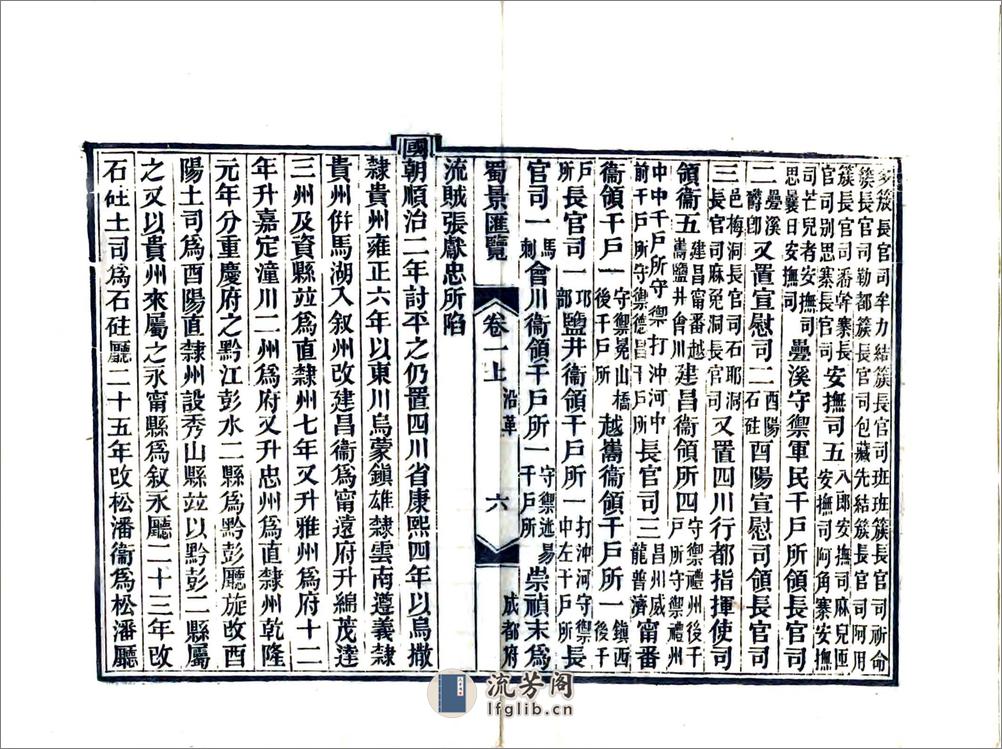 多簇長官司牟力結簇長官司班班簇長官司祈命
簇長官司勒都簇長官司包藏先結簇長官司阿用
簇長官司潘幹寨長官司別思寨長官司安撫司五八郎安撫司麻兒匝安撫司阿角寨安撫
司芒兒者安撫司思曩日安撫司疊溪守禦軍民千戶所領長官司
二疊溪鬱即又置宣慰司二酉陽石砫酉陽宣慰司領長官司
三邑梅洞長官司石耶洞長官司麻兔洞長官司又置四川行都指揮使司
領衞五建昌甯番越嶲鹽井會川建昌衞領所四守禦禮州後千戶所守禦禮州
中中千戶所守禦打沖河中前千戶所守禦德昌千戶所長官司三昌州威龍普濟甯番
衞領千戶一守禦冕山橋後千戶所越嶲衞領千戶所一鎮西後千
戶所長官司一邛部鹽井衞領千戶所一打沖河守禦中左千戶所長
官司一馬刺會川衞領千戶所一守禦迷易千戶所崇禎末爲
蜀景匯覽 卷一上 沿革 六 成都府
流賊張獻忠所陷
國朝順治二年討平之仍置四川省康熙四年以烏撒
隸貴州雍正六年以東川烏蒙鎮雄隸雲南遵義隸
貴州併馬湖入叙州改建昌衞爲甯遠府升綿茂達
三州及資縣竝爲直隸州七年又升雅州爲府十二
年升嘉定潼川二州爲府又升忠州爲直隸州乾隆
元年分重慶府之黔江彭水二縣爲黔彭廳旋改酉
陽土司爲酉陽直隸州設秀山縣竝以黔彭二縣屬
之又以貴州來屬之永甯縣爲叙永廳二十三年改
石砫土司爲石砫廳二十五年改松潘衞爲松潘廳
流芳阁
lfglib.cn